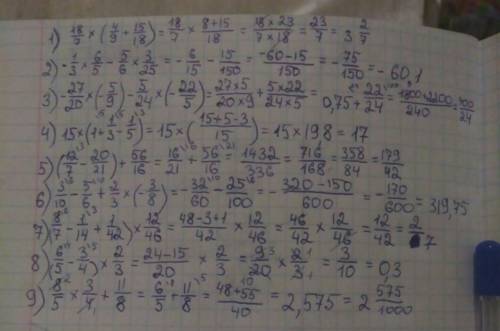 1) 18/7 × (4/9 + 15/18) = 18/7 × 8+15/18 = 18×23/7×18 = 23/7 = 3 2/7
2) -1/3 × 6/5 - 5/6 × 3/25 = -6/15 - 15/150 = -60-15/150 = -75/150 = -60,1
3) -27/20 × (-5/9) - 5/24 × (-22/5) = 27×5/20×9 + 5×22/24×5 = 0,75 + 22/24 = 1800+2200/240 = 400/24
4) 15×(1+1/3-1/5) = 15×(15+5-3/15) = 15×198 = 17
5) (12/7 - 20/21) + 56/16 = 16/21 + 56/16 = 1432/336 = 716/168 = 358/84 = 179/42
6) 3/10 - 5/6 + 2/3 × (-3/8) = -32/60 - 25/100 = -320-150/600 = -170/600 = 319,75
7) (8/7 - 1/14 + 1/42) × 12/46 = 48-3+1/42 × 12/46 = 46/42 × 12/46 = 12/42 = 2/7
8) (6/5 - 3/4) × 2/3 = 24-15/20 × 2/3 = 9/20 × 2/3 = 3/10 = 0,3
9) 8/5 × 3/4 + 11/8 = 6/5 + 11/8 = 48+55/40 = 2,575 = 2 575/1000